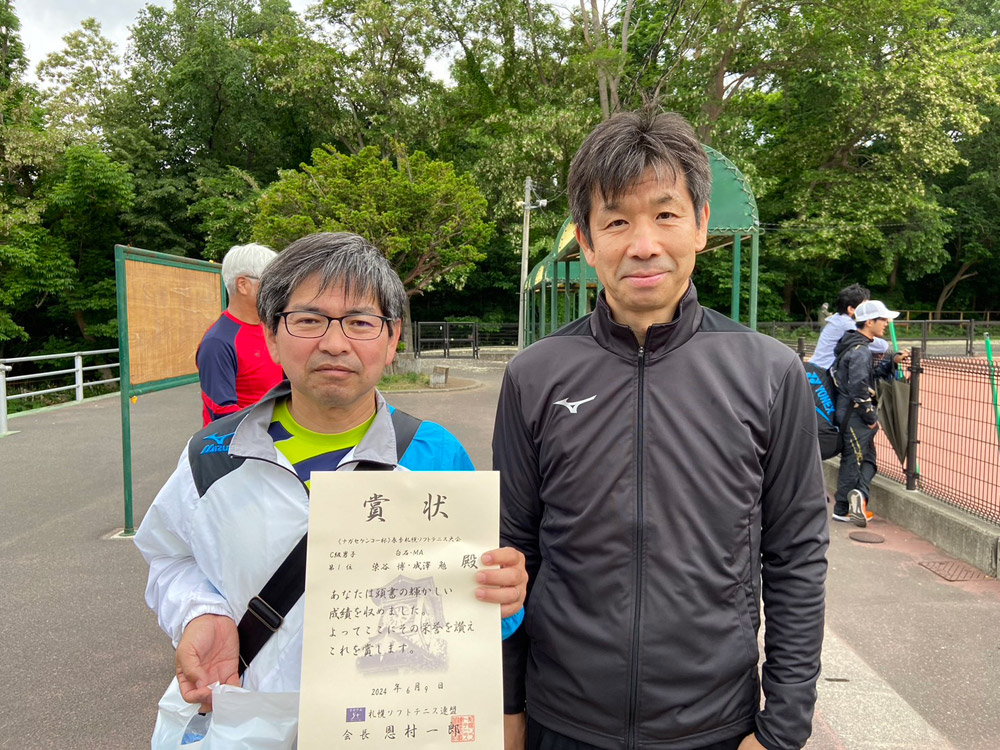 賞状
(ナガセケンコー杯)春季札幌ソフトテニス大会
C級男子 白石・MA
第1位 染谷 博・成澤 勉 殿
あなたは頭書の輝かしい
成績を収めました。
よってここにその栄誉を讃え
これを賞します。
2024年6月9日
札幌ソフトテニス連盟
会長 恩村一郎
MIZUNO
YONEX